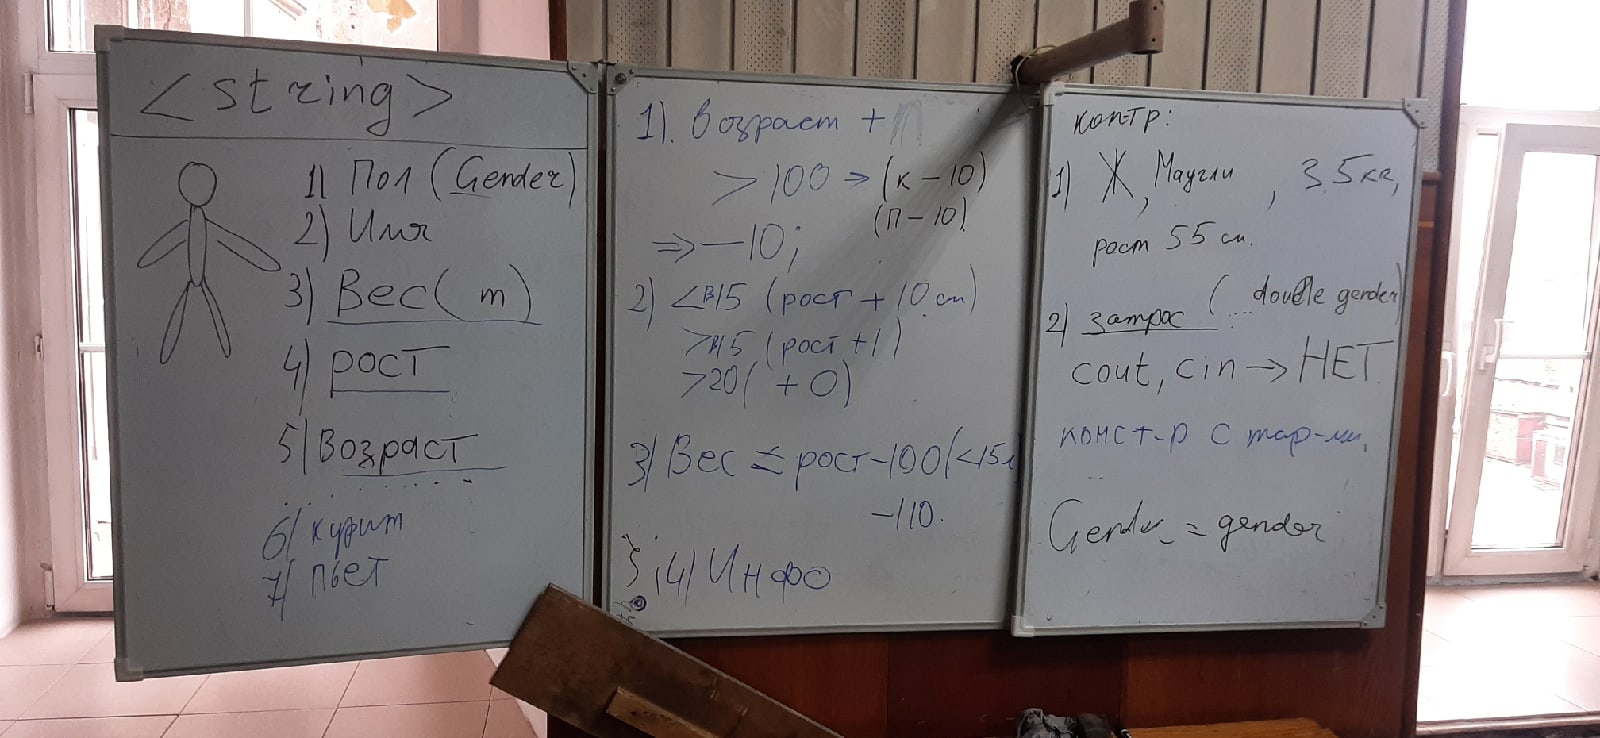 <string>
1) Пол (Gender)
2) Имя
3) Вес (m)
4) рост
5) Возраст
6) курит
7) пьёт
1). Возраст + n
> 100 ⇒ (к – 10)
(п – 10)
⇒ – 10;
2) < 15 (рост + 10 см)
> 15 (рост + 1)
> 20 ( + 0)
3) Вес ≤ рост – 100 (< 15
– 110.
4) Инфо
контр:
1) Ж, Маугли, 3.5 кг,
рост 55 см.
2) запрос (... double gender)
cout, cin → НЕТ
конст-р с пар-ми,
Gender = gender